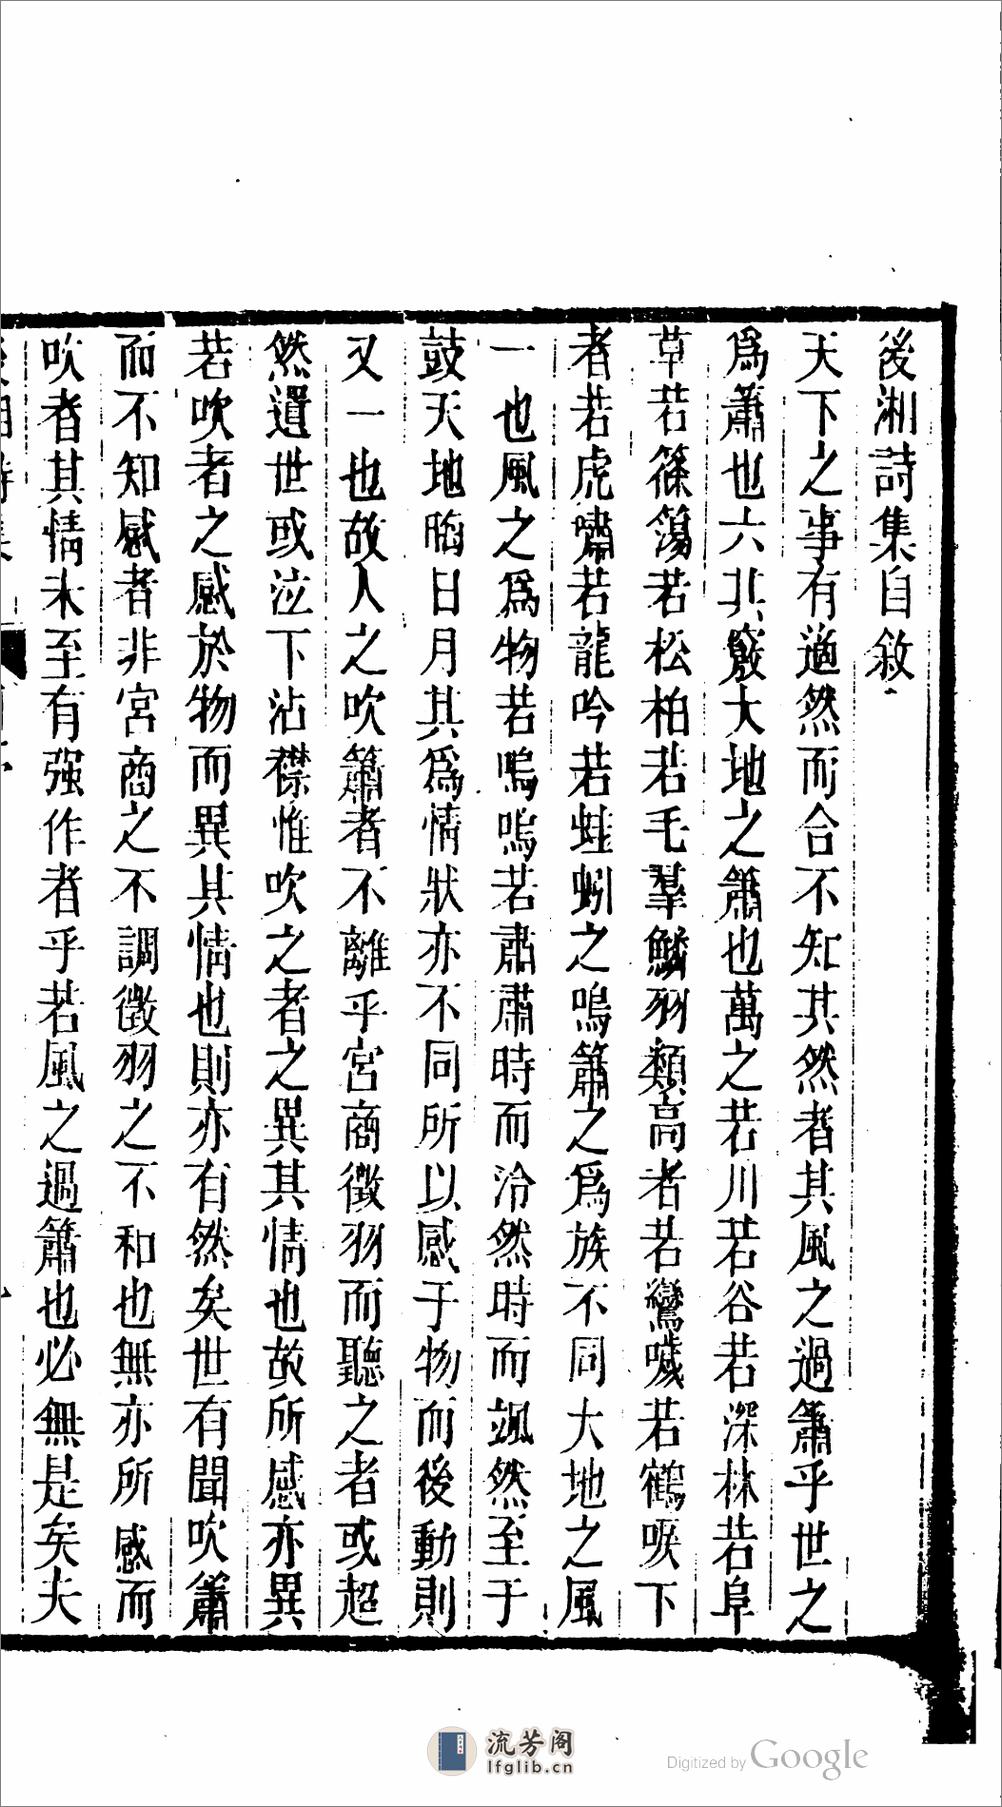 後湘詩集自敘
天下之事有適然而合不知其然者其風之過簫乎世之
爲簫也六其竅大地之簫也萬之若川若谷若深林若阜
草若篠簜若松柏若毛羣鱗羽類高者若鸞噦若鶴唳下
者若虎嘯若龍吟若蛙蚓之鳴簫之爲族不同大地之風
一也風之爲物若嗚嗚若肅肅時而泠然時而颯然至于
鼓天地晦日月其爲情狀亦不同所以感于物而後動則
又一也故人之吹簫者不離乎宮商徵羽而聽之者或超
然遺世或泣下沾襟惟吹之者之異其情也故所感亦異
若吹者之感於物而異其情也則亦有然矣世有聞吹簫
而不知感者非宮商之不調徵羽之不和也無亦所感而
吹者其情未至有强作者乎若風之過簫也必無是矣夫
流芳阁
lfglib.cn
Digitized by Google